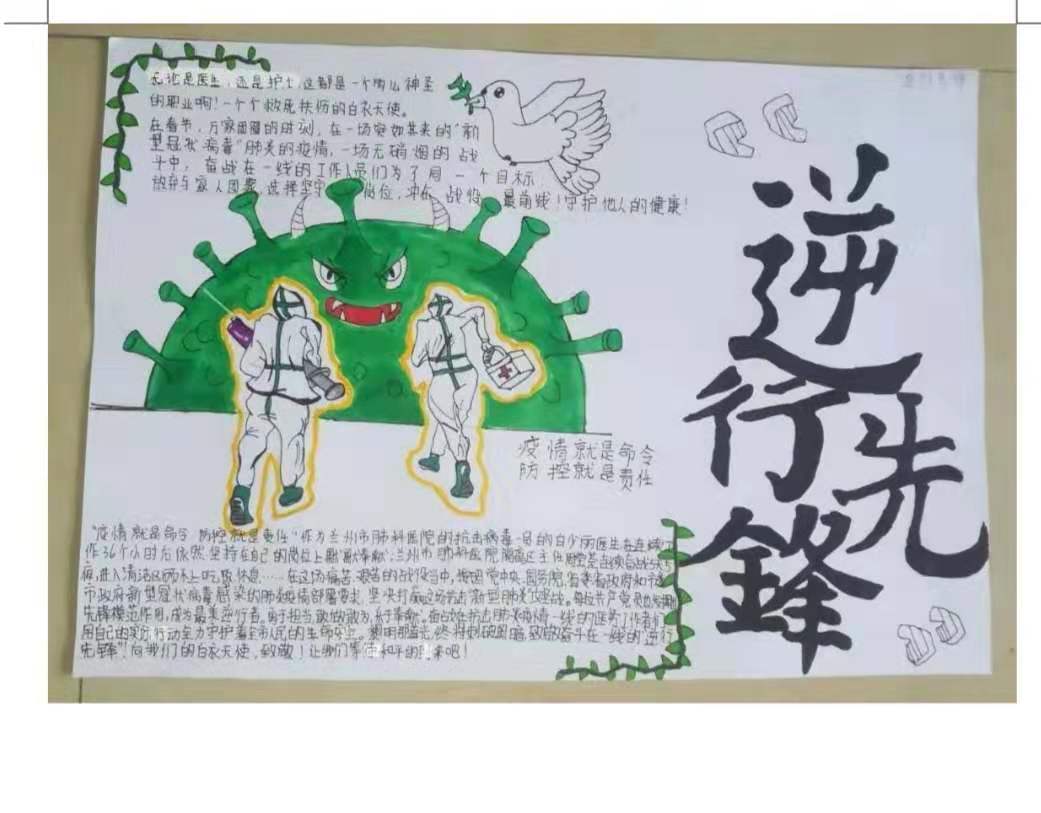 无论是医生,还是护士这都是一个多么神圣
的职业啊!一个个救死扶伤的白衣天使。
在春节,万家团圆的时刻,在一场突如其来的"新
型冠状病毒"肺炎的疫情,一场无硝烟的战
斗中,奋战在一线的工作人员们为了同一个目标
放弃与家人团聚,选择坚守 岗位,冲向战役 最前线!守护他人的健康!
逆行先鋒
疫情就是命令
防控就是责任
"疫情就是命令 防控就是责任"作为兰州市肺科医院的抗击病毒 医生在连续工
作36个小时后依然坚持在自己的岗位上 兰州市肺科医院隔离区主任 连续奋战
病,进入清洁区两小 休息……在这场痛苦、艰苦的战役当中,按照党中央、国务院、省委省政府和市
市政府新型冠状病毒感染的肺炎疫情部署要求,坚决打赢这场 战。每位共产党员
先锋模范作用,成为最美逆行者,勇于担当敢做敢为, 奋战在抗击肺炎疫情一线的医务工作者们
用自己的实际行动全力守护着全市人民的生命安全。黎明那道光,终将刺破黑暗,致敬奋斗在一线的"逆行
先锋"!向我们的白衣天使,致敬!让我们等待和平的 来吧!